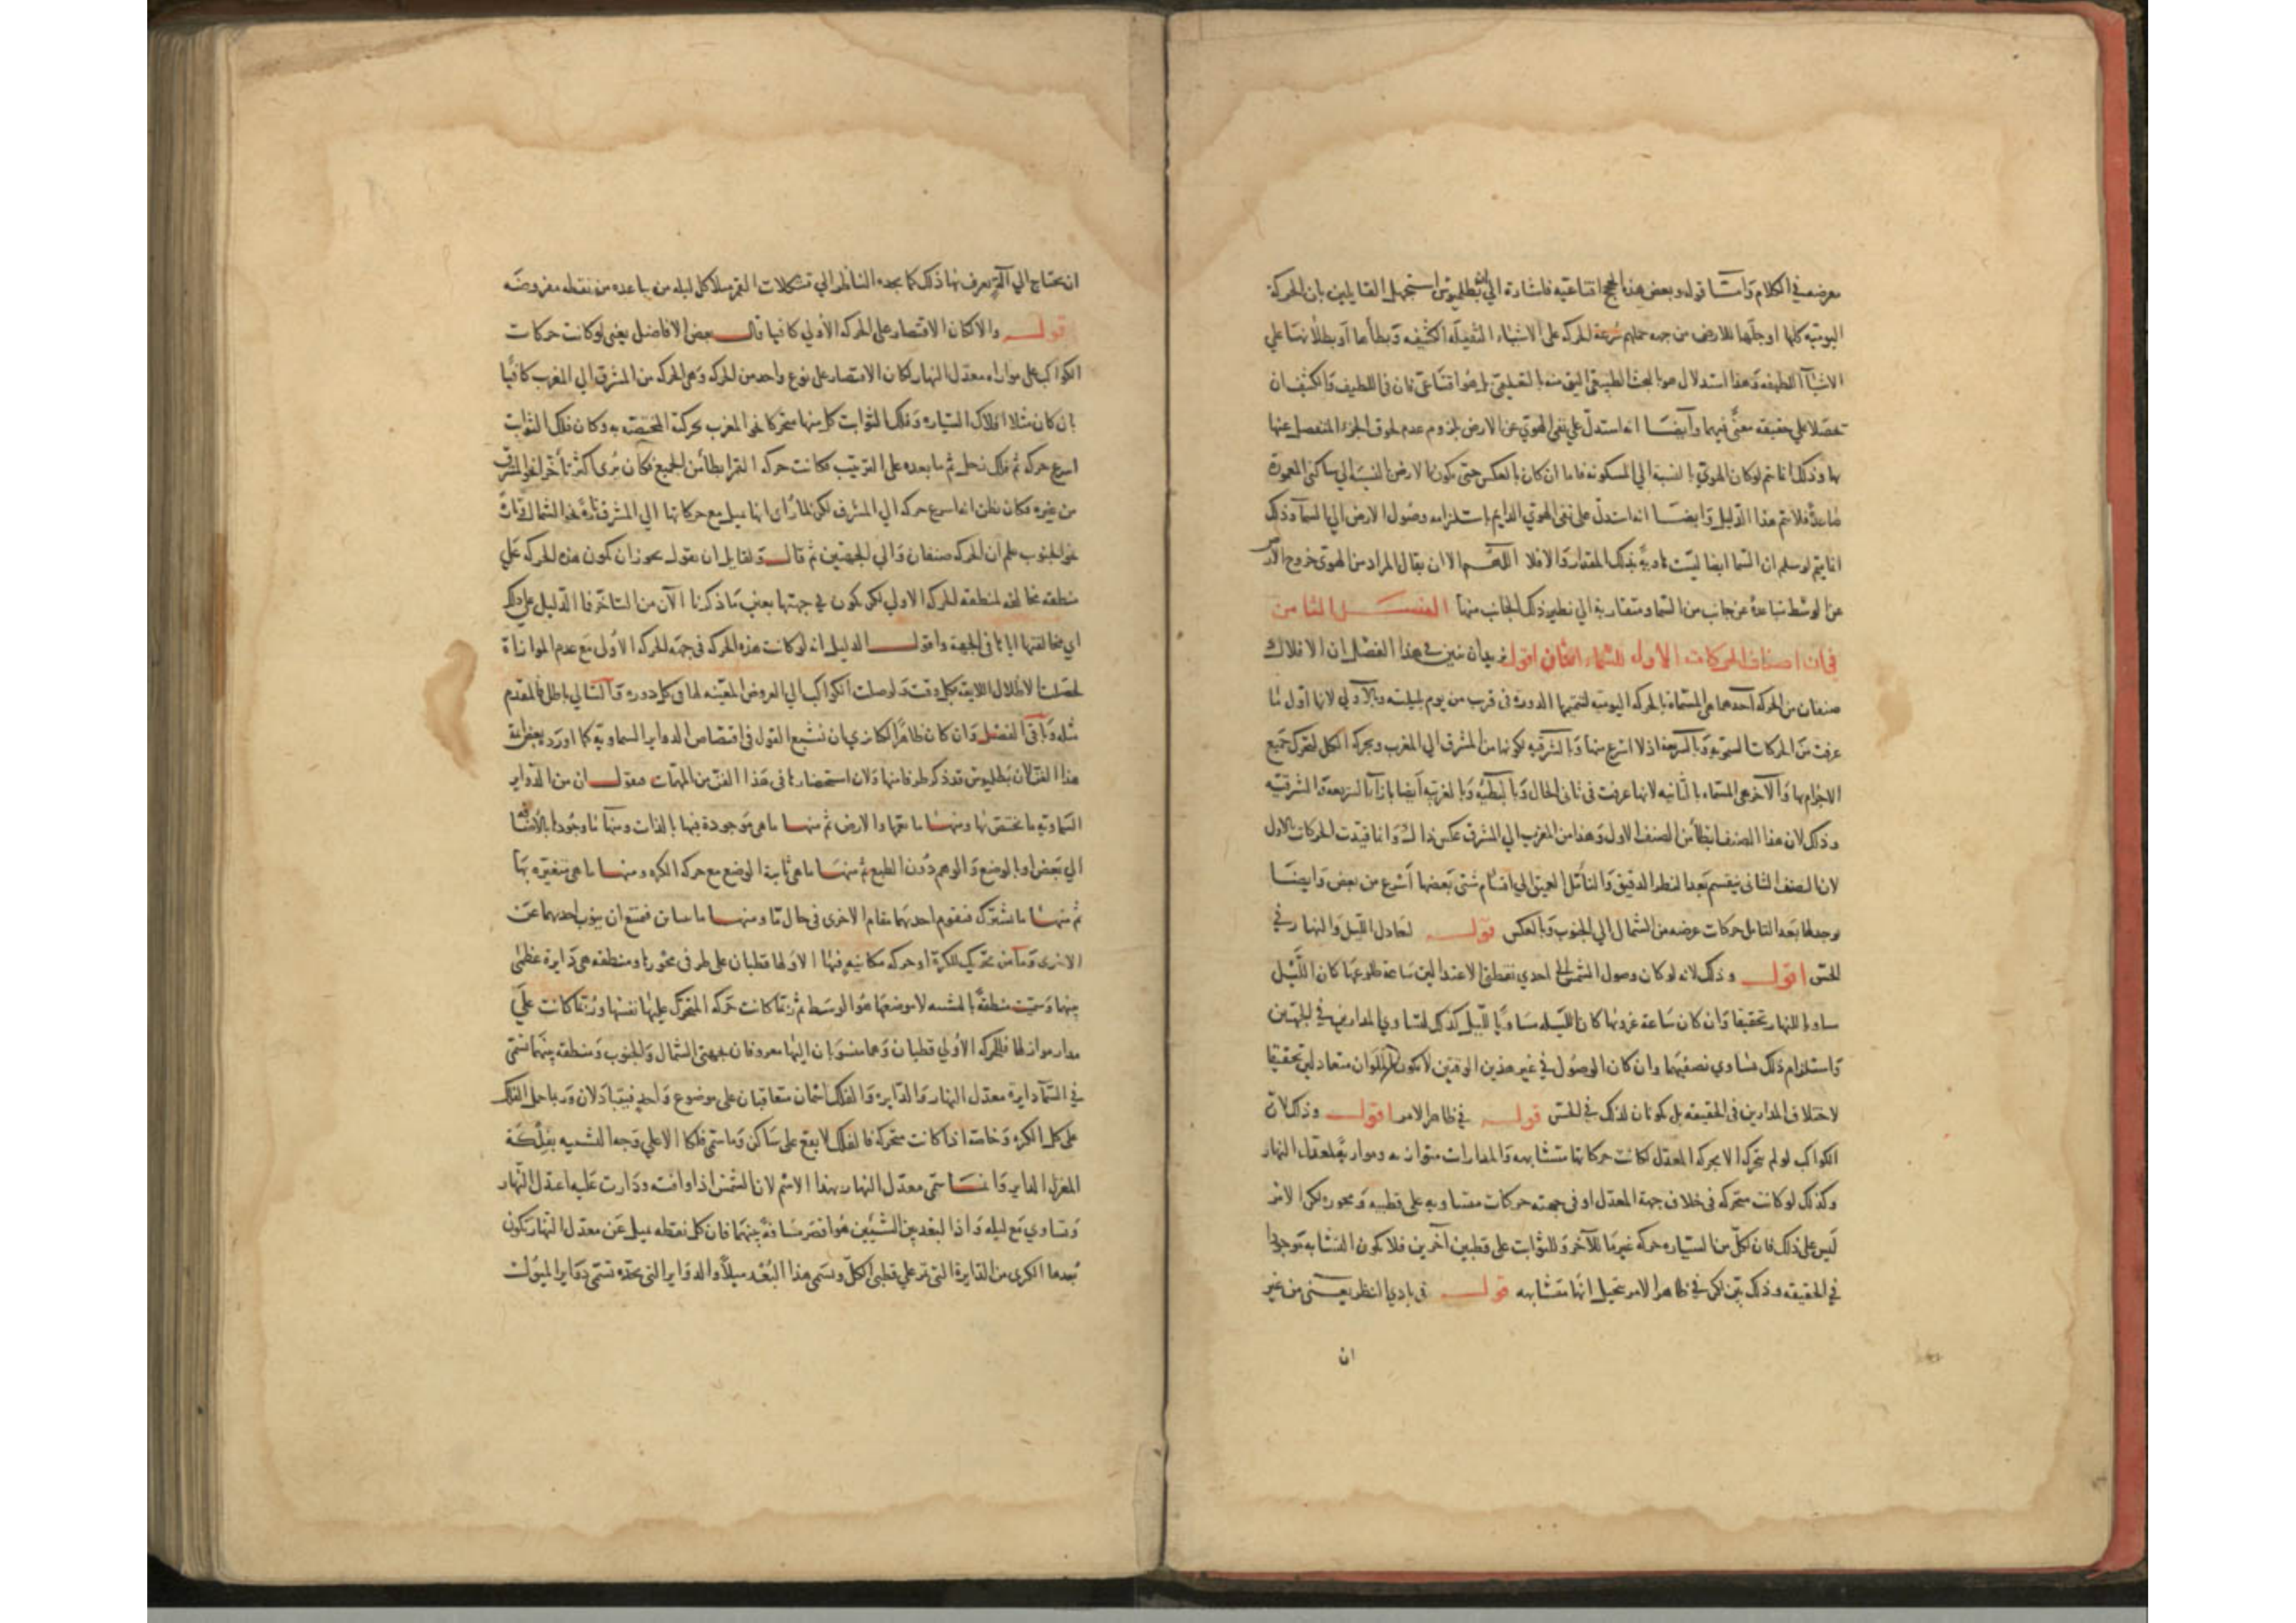 معرضه في الكلام وامّا قوله وبعض هذه الحجج اقناعيه فاشارة الي ان بطلميوس استجهل القايلين بان الحركة
اليوميه كلها او جلّها للارض من جهة حملهم سُرعة الحركة على الاشياء الثقيلة الكثيفه وبطأها او بطلانها علي
الاشيآ اللطيفه وهذا استدلال هو بالبحث الطبيعي اليق منه بالتعليمي بل هو اقناعي فان في اللطيف والكثيف ان
تحصّلا علي حقيقه معنًى فيهما وايضا انه استدلّ علي نفي الهويّ عن الارض بلزوم عدم لحوق الجزء المنفصل عنها
بها وذلك انما تم لو كان الهويّ بالنسبة الي المسكونه فاما ان كان بالعكس حتى يكون الارض بالنسبة الي ساكني المعمورة
صاعدةً فلا يتم هذا الدليل وايضا انه استدلّ على نفي الهويّ الدايم باستلزامه وصُول الارض الي السمآ وذلك
انما يتم لو سلم ان السما ايضا ليست هاويةً بذلك المقدار والا فلا اللهم الا ان يقال المراد من الهوي خروج الارض
عن الوسط متباعدة عن جانب من السماء ومتقاربة الي نظير ذلك الجانب منها الفصل الثامن
في ان اصناف الحركات الاول للسماء اثنان اقول يريد ان يبين في هذا الفصل ان الافلاك
صنفان من الحركه احدهما هي المسماة بالحركة اليوميّه لتتميمها الدورة في قرب من يوم بليلته وبالاولي لانها اول ما
عرفت من الحركات السماوية وبالسريعة اذ لا اسرع منها وبالشرقيه لكونها من المشرق الي المغرب وبحركة الكل لتحرك جميع
الاجرام بها والآخر هي المسماة بالثانيه لانها عرفت في ثاني الحال وبالبطيّه وبالغربيّه ايضا بازآء السريعة والشرقيّه
وذلك لان هذا الصنف ابطأ من الصنف الاول وهذا من المغرب الي المشرق عكس ذاك وانما قيّدت الحركات بالاول
لان الصنف الثاني ينقسم بعد النظر الدقيق والتأمّل العميق الي اقسام شتى بعضها اسرع من بعض وايضا
يوجد لها بعد التامل حركات عرضيه من الشمال الي الجنوب وبالعكس قوله لتعادل الليل والنهار في
الحسّ اقول وذلك لانه لو كان وصول الشمس الي احدي نقطتي الاعتدالين ساعة طلوعها كان الليل
ساويا للنهار تحقيقا وان كان ساعة غروبها كان الليله مساويًا لليل كذلك لتساوي المدارين في ليلتين
واستلزام ذلك تساوي نصفيهما وان كان الوصُول في غير هذين الوقتين لا يكون الملوان متعادلين تحقيقا
لاختلاف المدارين في الحقيقه بل يكونان لذلك في الحسّ قوله في ظاهر الامر اقول وذلك لانّ
الكواكب لو لم تتحرك الا بحركة المعدل لكانت حركاتها متشابهه والمدارات متوازيه وموازيةً لمعدل النهار
وكذلك لو كانت متحركه في خلاف جهة المعدل او في جهته حركات متساويه على قطبيه ومحوره لكن الامر
ليس على ذلك فان لكلٍّ من السيّاره حركه غير ما للآخر وللثوابت على قطبين آخرين فلا يكون التشابه موجودًا
في الحقيقه وذلك بيّن لكن في ظاهر الامر يتخيل انّها متشابهه قوله في بادي النظر يعني من غير
ان
ان يحتاج الي آلةٍ يعرف بها ذلك كما يجده الناظر الي تشكلات القمر مثلا كل ليله من باعده من نقطه مفروضه
قوله والا لكان الاقتصار على الحركة الأولي كافيا قال بعض الافاضل يعني لو كانت حركات
الكواكب على موازاه معدل النهار لكان الاقتصار على نوع واحد من الحركه وهي الحركه من المشرق الي المغرب كافيًا
بان كان مثلا افلاك السيّاره وفلك الثوابت كل منها متحركا نحو المغرب بحركته المختصّة به وكان فلك الثوابت
اسرع حركه ثم فلك زحل ثم ما بعده على الترتيب فكانت حركه القمر ابطأ من الجميع فكان يُرى اكثر تأخّرا نحو المشرق
من غيره فكان يظن انه اسرع حركه الي المشرق لكن لما رُأى انها تميل مع حركاتها الي المشرق تارةً نحو الشمال وتارة
نحو الجنوب علم ان الحركه صنفان والي الجهتين ثم قال ولقايل ان يقول يجوز ان يكون هذه الحركه علي
منطقه مخالفه لمنطقه الحركه الاولي لكن يكون في جهتها بعينها ما ذكرنا الآن من التاخر فما الدليل على ذلك
اي مخالفتها اياها في الجهه واقول الدليل انه لو كانت هذه الحركه في جهه الحركه الاولى مع عدم الموازاة
لحصلت الاظلال اللايقه بكل وقت ولوصلت الكواكب الي العروض المعيّنه لها في كل دوره والتالي باطل فالمقدم
مثله وباقي الفصل وان كان ظاهرًا لكنا نري ان نشبع القول في اقتصاص الدواير السماويه كما اورد بعض ائمة
هذا الفنّ لان بطلميوس قد ذكر طرفا منها ولان استحضارها في هذا الفنّ من المهمّات فنقول ان من الدّواير
السّماويّه ما يختصّ بها ومنها ما تعمّها والارض ثم منها ما هي موجودة فيها بالذات ومنها ما وجودها بالاضافه
الي بعض او بالوضع والوهم دُون الطبع ثم منها ما هي ثابتة الوضع مع حركه الكره ومنها ما هي متغيّره بها
ثم منها ما تشترك فيقوم احديهما مقام الاخرى في حال ما ومنها ما تباين فيمتنع ان ينوب احديهما عن
الاخرى وما من متحرك للكرة او حركه مكانيه فيها الا ولها قطبان على طرفي محورها ومنطقه هي دايرة عظمى
بينهما وسميت منطقةً بالتشبيه لان موضعها هو الوسط ثم ربما كانت حركه المتحرك عليها نفسها وربّما كانت علي
مدار مواز لها فللحركه الاولي قطبان وهما منسوبان اليها معروفان بجهتي الشمال والجنوب ومنطقه بينهما تسمى
في السمآ دايرة معدل النهار والدايره والفلك اسمان متعاقبان على موضوع واحدٍ فيتبادلان وربما حمل الفلك
على كل الكره وخاصّه اذا كانت متحركه فالفلك لا يقع على ساكن وما سمي فلكا الا علي وجه التشبيه بفلكة
المغزل الدايره وانما سمّي معدّل النهار بهذا الاسم لان الشمس اذا وافته ودارت عليه اعتدل النّهار
وتساوي مع ليله واذ البعد بين الشيئين هُو اقصر مسافةً بينهما فان كل نقطه تميل عَن معدل النهار يكون
بُعدها الكري من الدّايرة التي تمر علي قطبي الكلّ ويسمى هذا البُعْد ميلاً والدوايرا التي تحدّه تسمّى دوايرا لميول